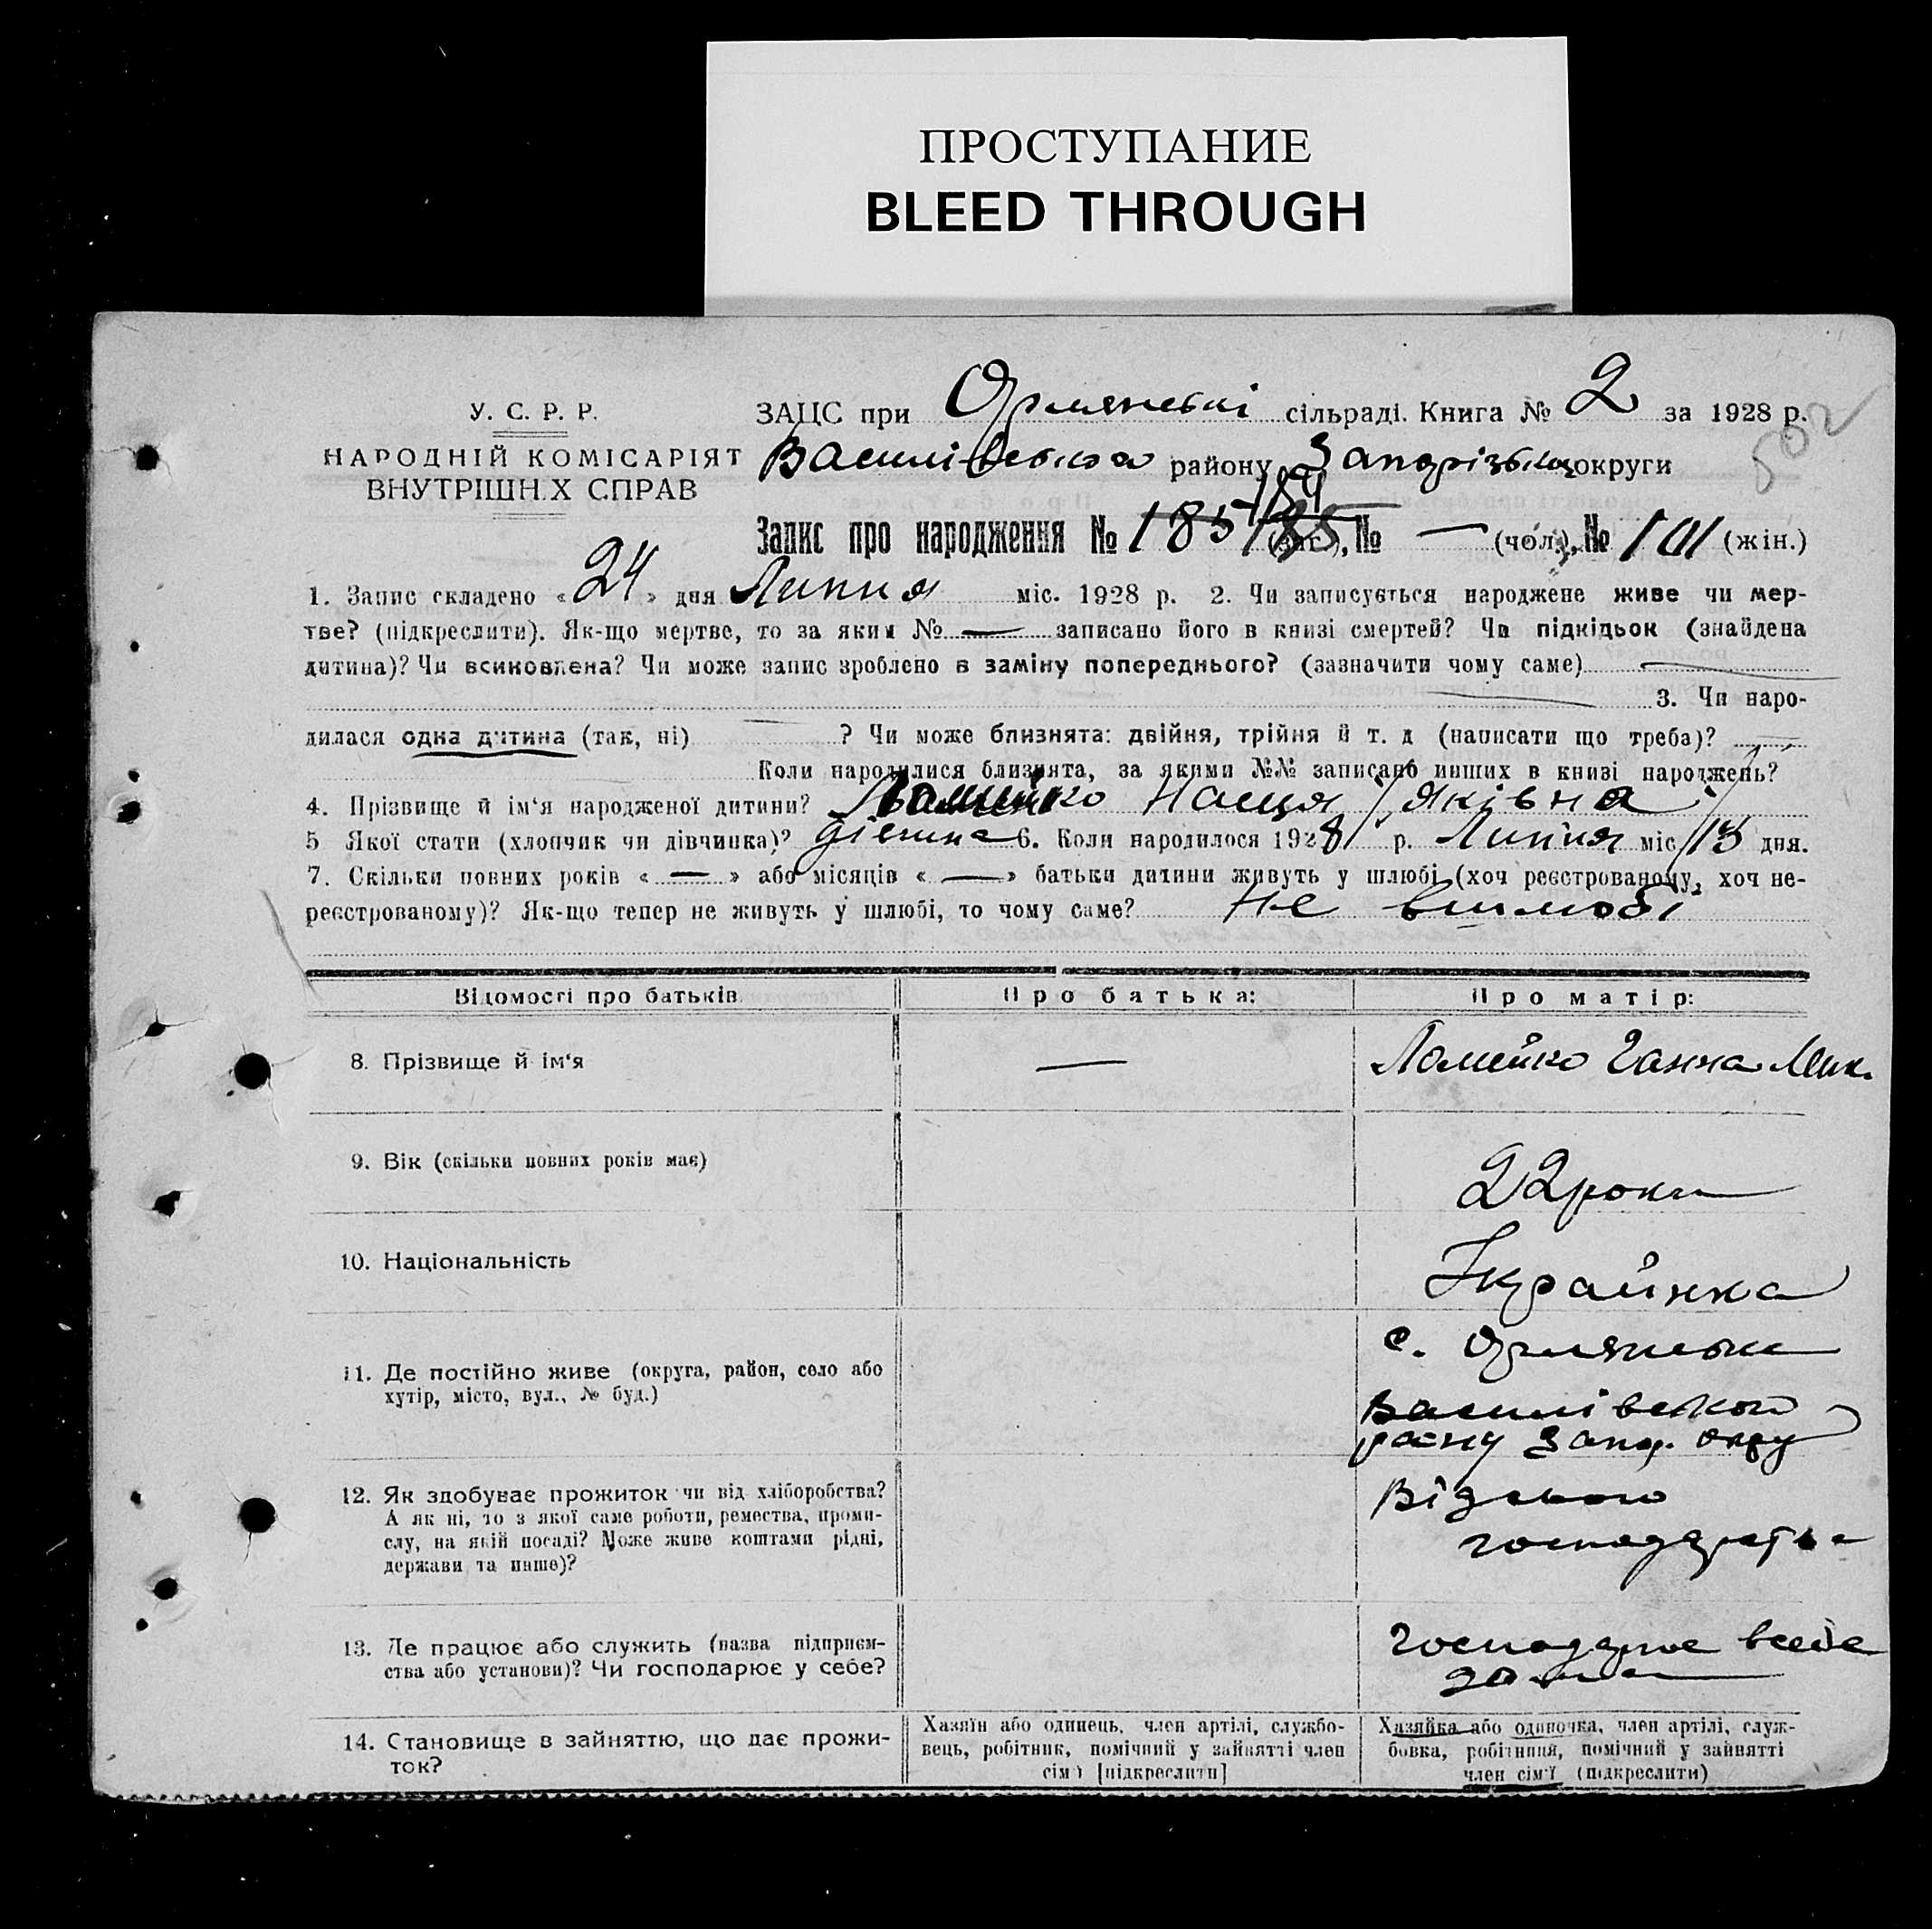 ПРОСТУПАНИЕ
BLEED THROUGH
У. С. Р. Р.
НАРОДНІЙ КОМІСАРІЯТ
ВНУТРІШНІХ СПРАВ
ЗАЦС при Орлянські сільраді. Книга № 2 за 1928 р.
502
Василівського району Запорізької округи
184
Запис про народження № 185 (чол.), № — № 101 (жін.)
1. Запис складено «24» дня Липня міс. 1928 р. 2. Чи записується народжене живе чи мер-
тве? (підкреслити). Як-що мертве, то за яким № — записано його в книзі смертей? Чи підкідьок (знайдена
дитина)? Чи всиновлена? Чи може запис зроблено в заміну попереднього? (зазначити чому саме) —
3. Чи наро-
дилася одна дитина (так, ні) — ? Чи може близнята: двійня, трійня й т. д (написати що треба)? —
Коли народилися близнята, за якими №№ записано инших в книзі народжень?
4. Прізвище й ім‘я народженої дитини? Ламейко Настя /Яківна/
5 Якої стати (хлопчик чи дівчинка)? дівчина 6. Коли народилося 1928 р. Липня міс 13 дня.
7. Скільки повних років «—» або місяців «—» батьки дитини живуть у шлюбі (хоч реєстрованому, хоч не-
реєстрованому)? Як-що тепер не живуть у шлюбі, то чому саме? Не вшлюбі
Відомості про батьків.
Про батька:
Про матір:
8. Прізвище й ім‘я
—
Ламейко Ганна Мик.
9. Вік (скільки повних років має)
22 роки
10. Національність
Украйнка
11. Де постійно живе (округа, район, село або
хутір, місто, вул., № буд.)
с. Орлянськ
Василівського
району Запор. окру
12. Як здобуває прожиток чи від хліборобства?
А як ні, то з якої саме роботи, ремества, проми-
слу, на якій посаді? Може живе коштами рідні,
держави та инше)?
Від
господарства
13. Де працює або служить (назва підприєм-
ства або установи)? Чи господарює у себе?
Господарює всебе
дома
14. Становище в зайняттю, що дає прожи-
ток?
Хазяїн або одинець, член артілі, службо-
вець, робітник, помічний у зайнятті член
сім‘ї [підкреслити]
Хазяйка або одиночка, член артілі, служ-
бовка, робітниця, помічний у зайнятті
член сім‘ї (підкреслити)